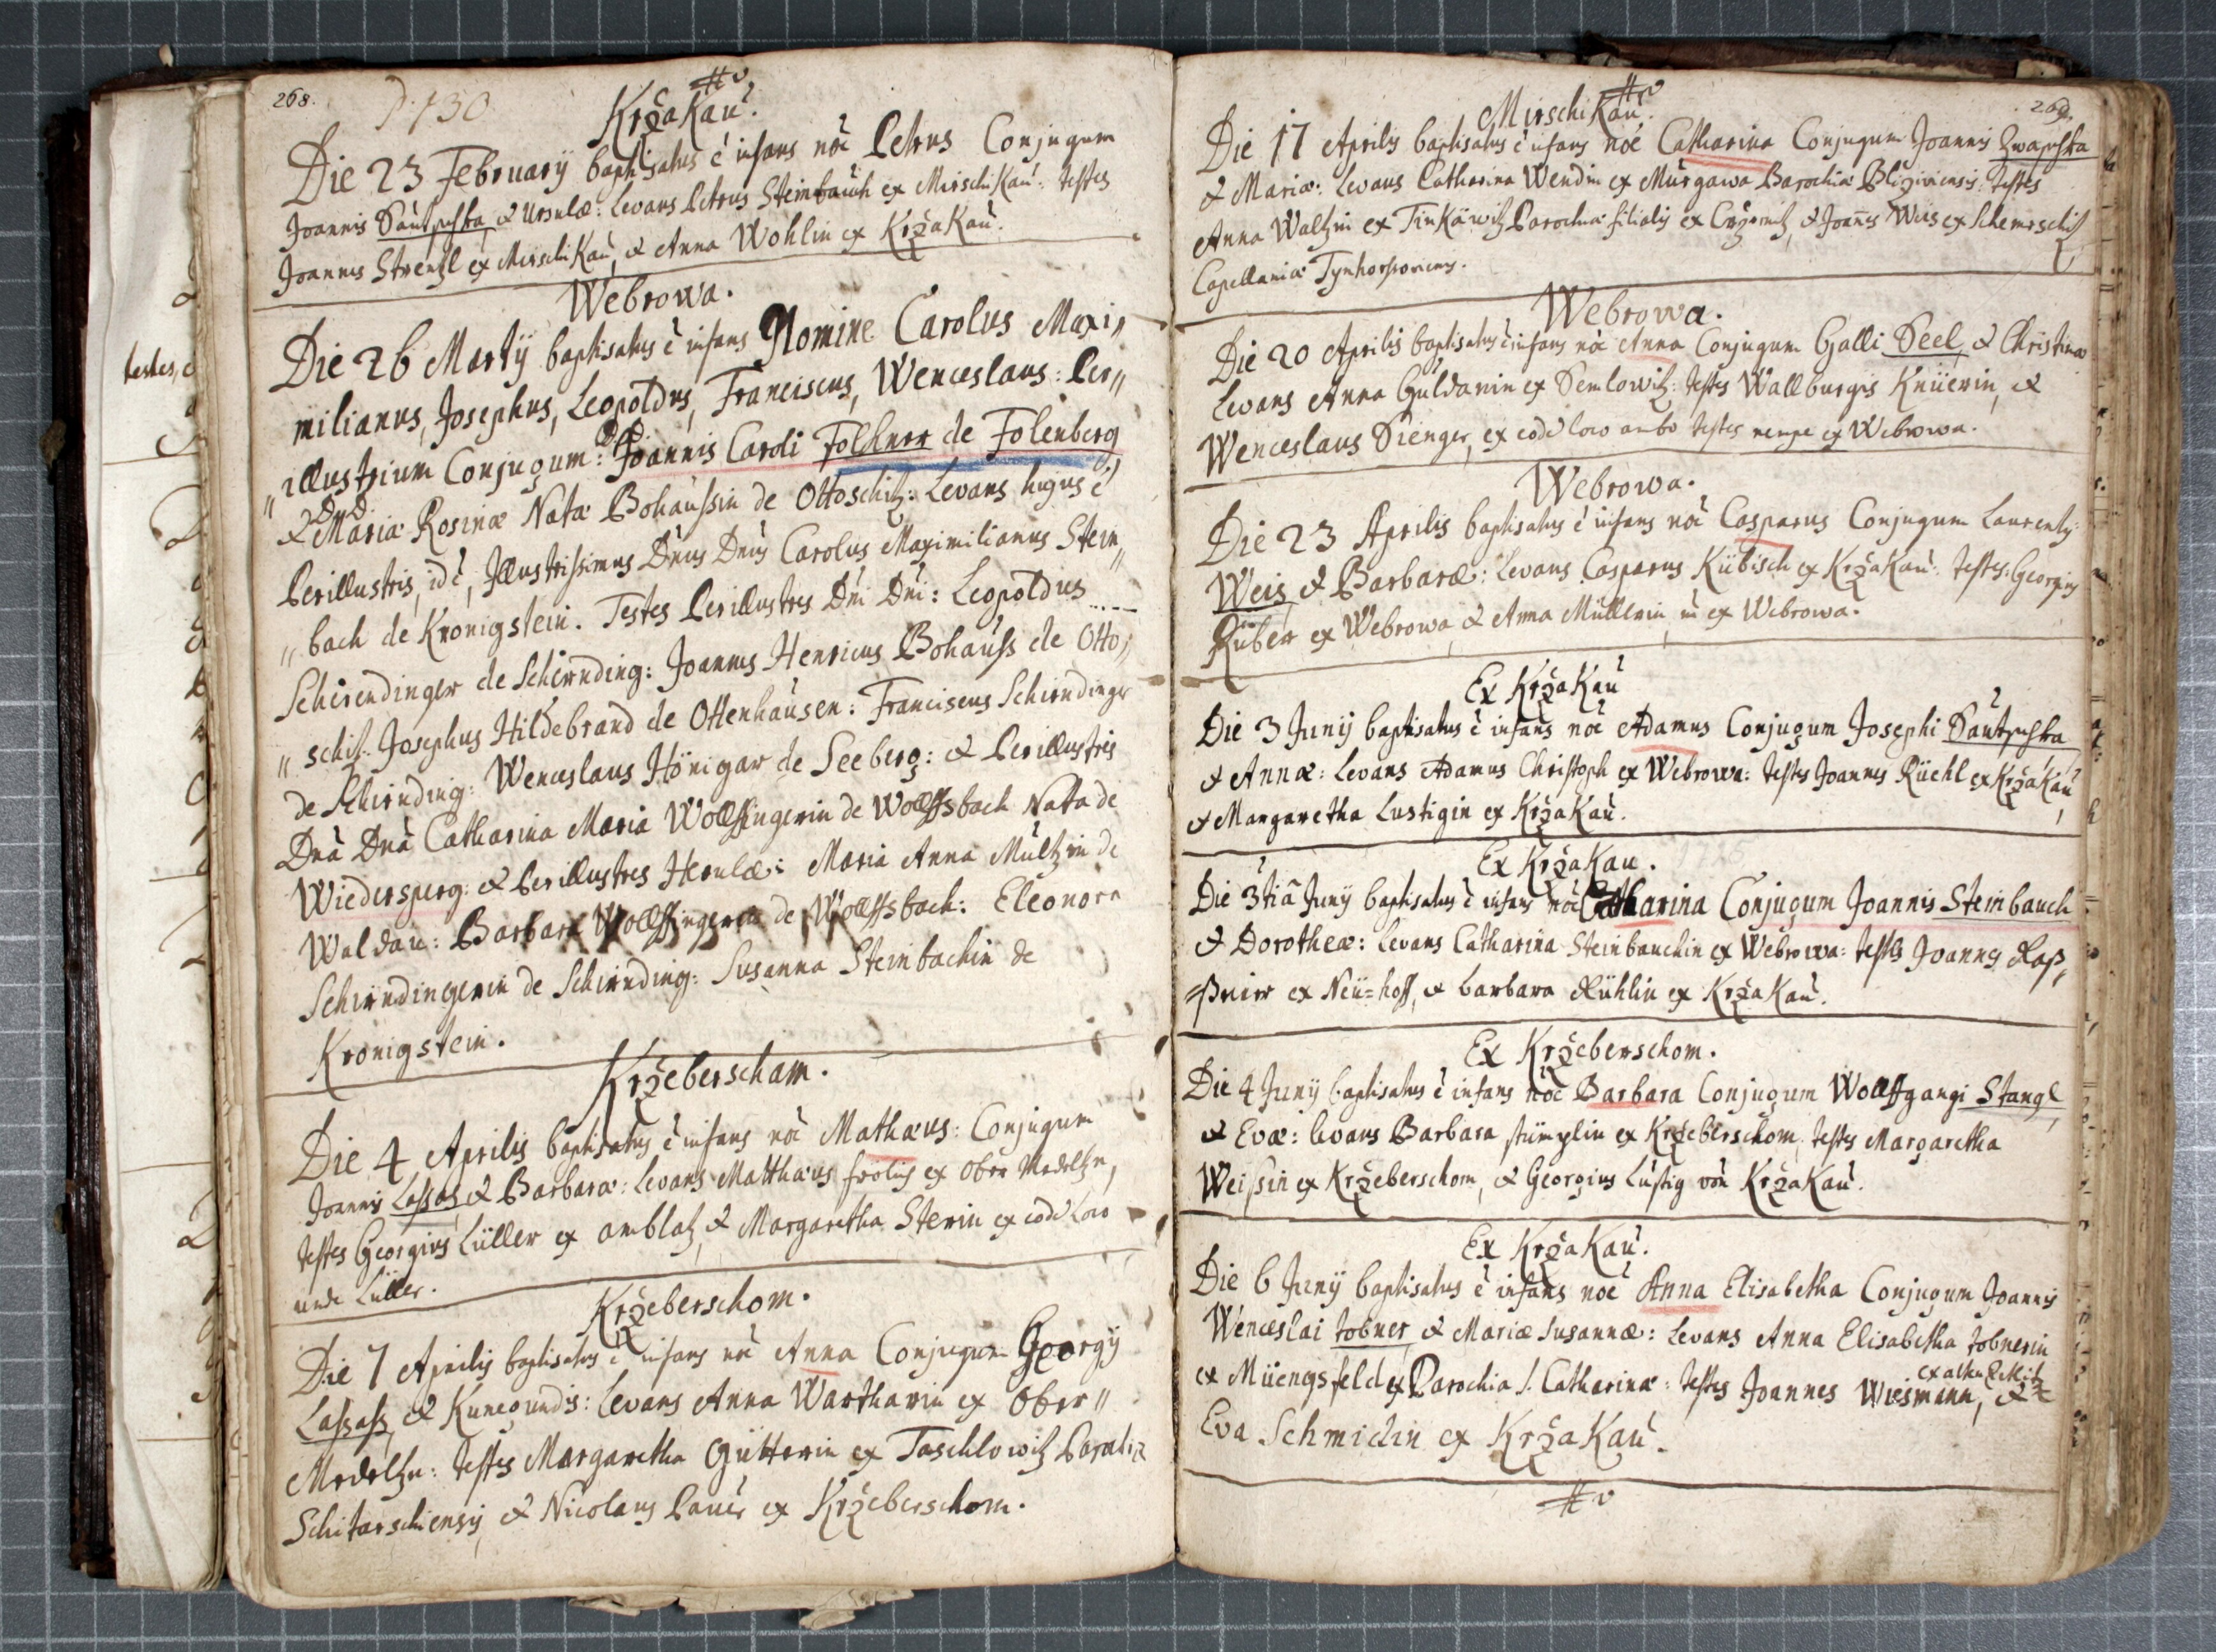 268.
p. 130
KržaKaú.
Die 23 February baptisatus ẽ infans nõe Petrus Conjugum
Joannis Saútschka & Ursulæ: Levans Petrus Steinbaúch ex MirschiKaú: testes
Joannes Strentzl ex MirschiKaú, & Anna Wohlin ex KržaKaú.
Webrowa.
Die 26 Martÿ baptisatus ẽ infans Nomine Carolus Maxi„
milianus, Josephus, Leopoldus, Franciscus, Wenceslaus: Per„
„illustrium Conjugum: DD Joannis Caroli Folkner de Folenberg
& DnD. Maria Rosinæ Nata Bohaussin de Ottoschitz: Levans hujus ẽ
Perillustris, id ẽ, Illustrissimus Dnus Dnus Carolus Maximilianus Stein„
„bach de Kronigstein. Testes Perillustres Dni Dni: Leopoldus
Schirendinger de Schirnding: Joannes Henricus Bohauss de Otto„
„schitz: Josephus Hildebrand de Ottenhausen: Franciscus Schirndinger
de Schirnding: Wenceslaus Hönigar de Seeberg: & Perillustris
Dnã Dnã Catharina Maria Wolffingerin de Wolffsbach Nata de
Wiedersperg: & Perillustres Herulæ: Maria Anna Múltzin de
Waldau: Barbara Wolffingerin de Wolffsbach: Eleonora
Schirndingerin de Schirnding: Susanna Steinbachin de
Kronigstein.
Kržeberscham.
Die 4 Aprilis baptisatus ẽ infans nõe Mathæus: Conjugum
Joannis Lassas & Barbaræ: Levans Matthæus frölig ex Ober Medeltzn,
testes Georgius Lüller ex amblatz, & Margaretha Sterin ex eodẽ loco
unde Lüller.
Kržeberschom.
Die 7 Aprilis baptisatus ẽ infans nõe Anna Conjugum Georgÿ
Lassass, & Kunegundis: Levans Anna Warthavin ex Ober„
Medeltzn: testes Margaretha Gütterin ex Taschlowitz Parochiæ
Schitarschiensis & Nicolaus Pauer ex Kržeberschom.
269.
MirschiKaú.
Die 17 Aprilis baptisatus ẽ infans nõe Catharina Conjugum Joannis Zwaschka
& Mariæ: Levans Catharina Wendin ex Múrgawa Parochiæ Plizinensis: testes
Anna Waltzin ex Tinkäwitz Parochiæ filialis ex, & Joanes Weis ex Schemrschitz
Capellaniæ Tynhorssoviens.
Webrowa.
Die 20 Aprilis baptisatus ẽ infans nõe Anna Conjugum Galli Seel, & Christinæ
Levans Anna Guldanin ex Semlowitz: testes Wallburgis Knüerin, &
Wenceslaus Sienger, ex eodẽ loco ambo testes nempe ex Webrowa.
Webrowa.
Die 23 Aprilis baptisatus ẽ infans nõe Casparus Conjugum Laurentz:
Weis & Barbaræ: Levans Casparus Kübisch ex KržaKaú: testes: Georgius
Rüber ex Webrowa & Anna Müllerin, ex Webrowa.
Ex KržaKaú
Die 3 Junÿ baptisatus ẽ infans nõe Adamus Conjugum Josephi Saútschka
& Annæ: Levans Adamus Christoph ex Webrowa: testes Joannes Rüehl ex KržaKaú
& Margaretha Lustigin ex KržaKaú.
Ex KržaKau.
Die 3tiã Junÿ baptisatus ẽ infans nõe Catharina Conjugum Joannis Steinbauch
& Dorotheæ: Levans Catharina Steinbauchin ex Webrowa: testes Joannes Rass„
Pnirr ex Neü=hoff, & barbara Rühlin ex KržaKaú.
Ex Kržeberschom.
Die 4 Junÿ baptisatus ẽ infans nõe Barbara Conjugum Wolffgangi Stangl
& Evæ: levans Barbara stümplin ex Kržeberschom: testes Margaretha
Weissin ex Kržeberschom, & Georgius Lústig von KržaKaú.
Ex KržaKaú.
Die 6 Junÿ baptisatus ẽ infans nõe Anna Elisabetha Conjugum Joannis
Wenceslai tobner & Mariæ Susannæ: Levans Anna Elisabetha tobnerin
ex Müengsfeld ex Parochia S. Catharinæ: testes Joannes Wiesmann, &
Eva Schmidin ex KržaKaú.